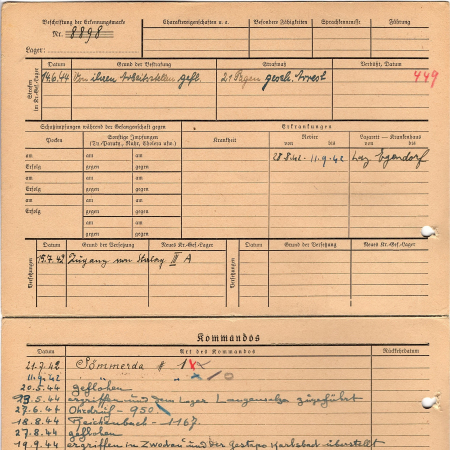 Beschriftung der Erkennungsmarke
Charaktereigenschaften u. a.
Besondere Fähigkeiten
Sprachkenntnisse
Führung
Nr. 8898
Lager:
Strafen im Kr.-Gef.-Lager
Datum
Grund der Bestrafung
Strafmaß
Verbüßt, Datum
14.6.44
Von ihrem Arbeitsstellen gefl.
21 Tagen gesch. Arrest
449
Schutzimpfungen während der Gefangenschaft gegen
Erkrankungen
Pocken
Sonstige Impfungen
(Ty./Paraty., Ruhr, Cholera usw.)
Krankheit
Revier
von bis
Lazarett — Krankenhaus
von bis
am am am
28.8.42 - 11.9.42 Laz Egendorf
Erfolg gegen gegen
am am am
Erfolg gegen gegen
am am am
Erfolg gegen gegen
am am
gegen gegen
am am
gegen gegen
Versetzungen
Datum
Grund der Versetzung
Neues Kr.-Gef.-Lager
Datum
Grund der Versetzung
Neues Kr.-Gef.-Lager
15.7.42 Zugang von Stalag III A
Kommandos
Datum
Art des Kommandos
Rückkehrdatum
21.7.42 Sömmerda
11.9.42
20.5.44 geflohen
ergriffen und dem Lager Langensalza zugeführt
27.6.44 Ohrdruf - 950
18.8.44 Reichenbach - 1167.
27.8.44 geflohen
19.9.44 ergriffen in Zwodau und der Gestapo Karlsbad überstellt